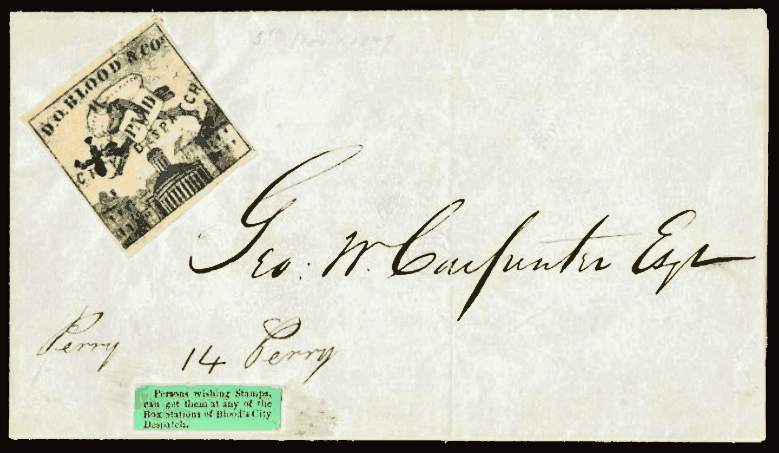 D.O. BLOOD & CO.
PAID
CITY DESPATCH
Geo. W. Carpenter Esqr
Perry 14 Perry
Persons wishing Stamps,
can get them at any of the
Box Stations of Blood's City
Despatch.